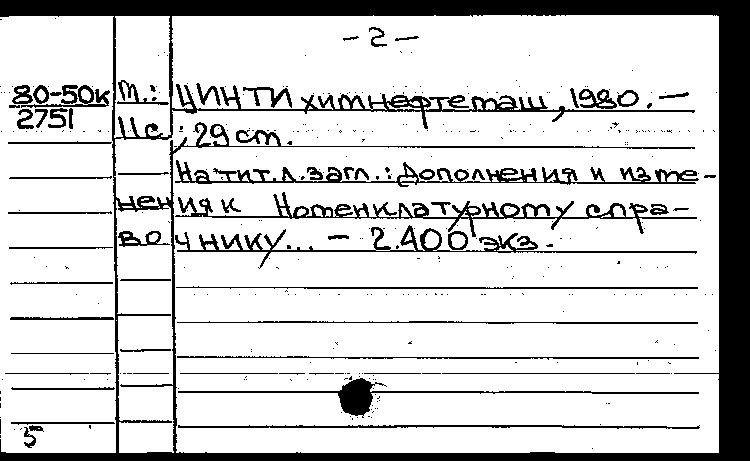 – 2 –
80-50к М.: ЦИНТИхимнефтемаш, 1980. –
2751
11с.; 29 см.
На тит. л. загл.: Дополнения и изме-
нения к Номенклатурному спра-
вочнику... – 2.400 экз.
5